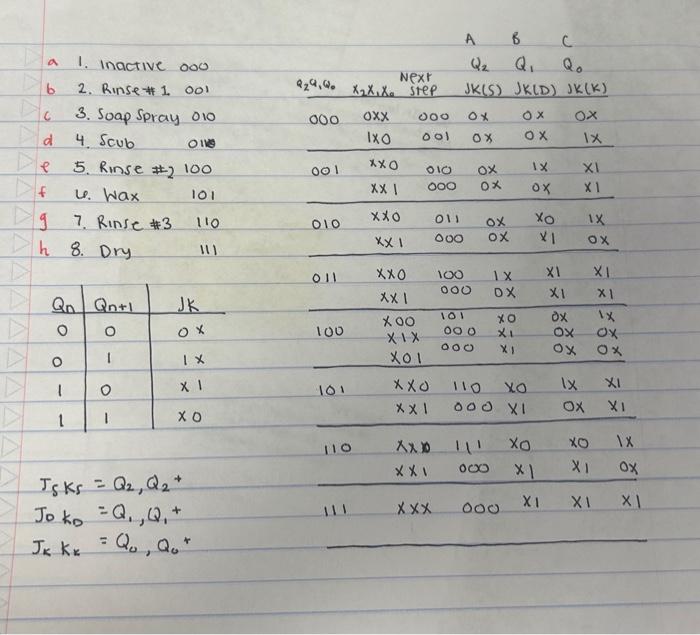 A B C
Q2 Q1 Q0
Q2Q1Q0 X2X1X0 Next step JK(S) JK(D) JK(K)
a 1. Inactive 000
b 2. Rinse #1 001
c 3. Soap Spray 010
d 4. Scub 011
e 5. Rinse #2 100
f 6. Wax 101
g 7. Rinse #3 110
h 8. Dry 111
Qn Qn+1 JK
0 0 0X
0 1 1X
1 0 X1
1 1 X0
JsKs = Q2, Q2+
JDKD = Q1, Q1+
JKKK = Q0, Q0+
000 0XX 000 0X 0X 0X
1X0 001 0X 0X 1X
001 XX0 010 0X 1X X1
XX1 000 0X 0X X1
010 XX0 011 0X X0 1X
XX1 000 0X X1 0X
011 XX0 100 1X X1 X1
XX1 000 0X X1 X1
100 X00 101 X0 0X 1X
X1X 000 X1 0X 0X
X01 000 X1 0X 0X
101 XX0 110 X0 1X X1
XX1 000 X1 0X X1
110 XX0 111 X0 X0 1X
XX1 000 X1 X1 0X
111 XXX 000 X1 X1 X1